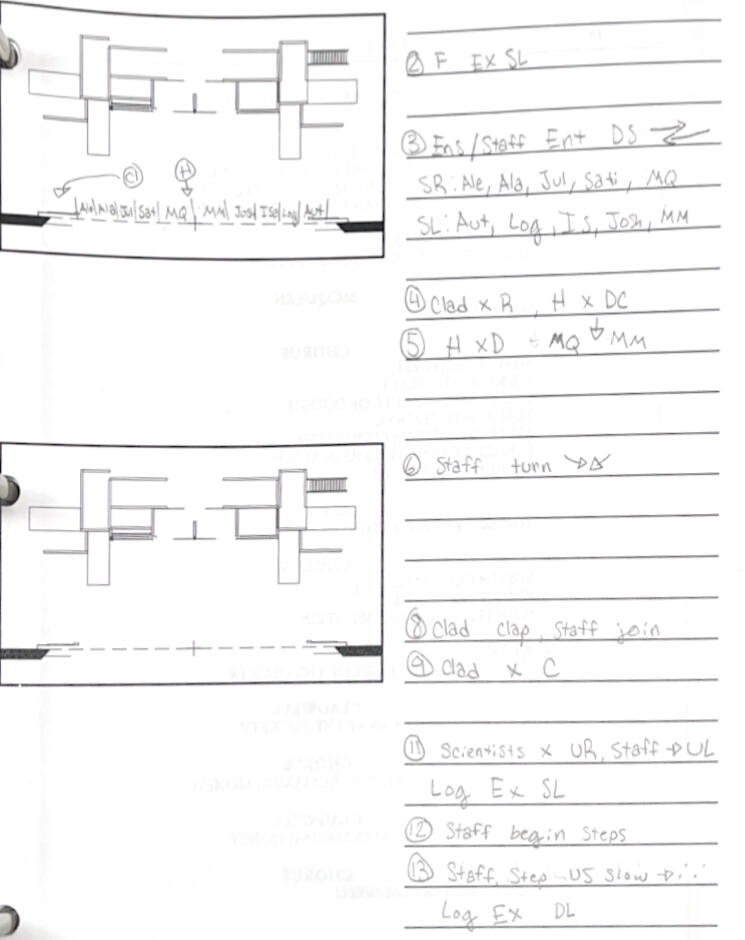 C H
Ale|Ala|Jul|Sati|MQ|MM|Josh|Isa|Log|Aut|
② F Ex SL
③ Ens/Staff Ent DS
SR: Ale, Ala, Jul, Sati, MQ
SL: Aut, Log, Is, Josh, MM
④ Clad x R, H x DC
⑤ H x D MQ ↓ MM
⑥ Staff turn
⑧ Clad clap, Staff join
⑨ Clad x C
⑪ Scientists x UR, Staff → UL
Log Ex SL
⑫ Staff begin steps
⑬ Staff, Step US slow →
Log Ex DL
MCQUEEN
CHORUS
CLADWELL
CHORUS
CLADWELL
CHORUS